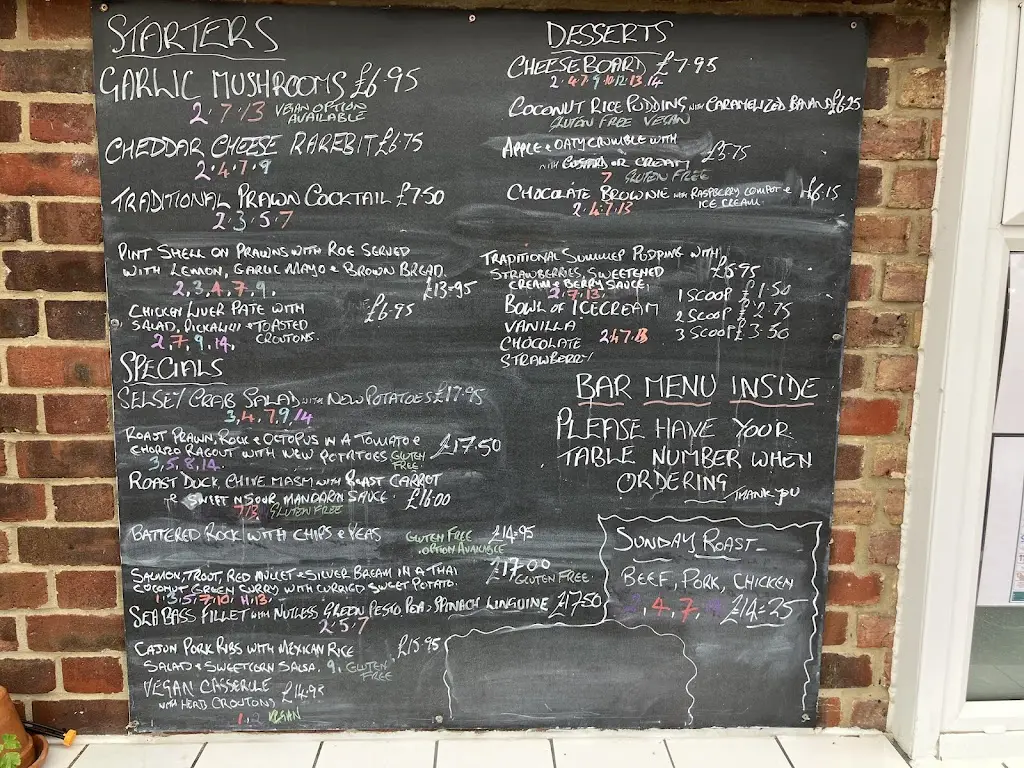 STARTERS
GARLIC MUSHROOMS £6.95
2·7·13 VEGAN OPTION
AVAILABLE
CHEDDAR CHEESE RAREBIT £6.75
2·4·7·9
TRADITIONAL PRAWN COCKTAIL £7.50
2·3·5·7
PINT SHELL ON PRAWNS WITH ROE SERVED
WITH LEMON, GARLIC MAYO & BROWN BREAD.
2,3,4,7,9, £13.95
CHICKEN LIVER PATE WITH £6.95
SALAD, PICKALILLI & TOASTED
2,7,9,14, CROUTONS.
SPECIALS
SELSEY CRAB SALAD WITH NEW POTATOES £17.95
3,4,7,9,14
ROAST PRAWN, ROCK & OCTOPUS IN A TOMATO &
CHORIZO RAGOUT WITH NEW POTATOES GLUTEN FREE £17.50
3,5,8,14.
ROAST DUCK, CHIVE MASH WITH ROAST CARROT
SWEET N SOUR MANDARIN SAUCE £16.00
7 13 GLUTEN FREE
BATTERED ROCK WITH CHIPS & PEAS GLUTEN FREE £14.95
OPTION AVAILABLE
SALMON, TROUT, RED MULLET & SILVER BREAM IN A THAI £17.00
COCONUT GREEN CURRY WITH CURRIED SWEET POTATO. GLUTEN FREE
1,3,5,7,10,11,13.
SEA BASS FILLET WITH NUTLESS GREEN PESTO PEA & SPINACH LINGUINE £17.50
2·5·7
CAJUN PORK RIBS WITH MEXICAN RICE £15.95
SALAD & SWEETCORN SALSA. 9, GLUTEN
FREE
VEGAN CASSEROLE £14.95
WITH HERB CROUTONS
1,2 VEGAN
DESSERTS
CHEESEBOARD £7.95
2·4·7·9·10·12·13·14
COCONUT RICE PUDDING WITH CARAMELIZED BANANA £6.25
GLUTEN FREE VEGAN
APPLE & OATY CRUMBLE WITH
WITH CUSTARD OR CREAM £5.75
7 GLUTEN FREE
CHOCOLATE BROWNIE WITH RASPBERRY COMPOTE £6.15
2·4·7·13 ICE CREAM
TRADITIONAL SUMMER PUDDING WITH
STRAWBERRIES, SWEETENED £6.95
CREAM & BERRY SAUCE,
2,7,13,
BOWL OF ICECREAM 1 SCOOP £1.50
VANILLA 2 SCOOP £2.75
CHOCOLATE 2 4 7 13 3 SCOOP £3.50
STRAWBERRY
BAR MENU INSIDE
PLEASE HAVE YOUR
TABLE NUMBER WHEN
ORDERING
THANK YOU
SUNDAY ROAST
BEEF, PORK, CHICKEN
4, 7, £14.25